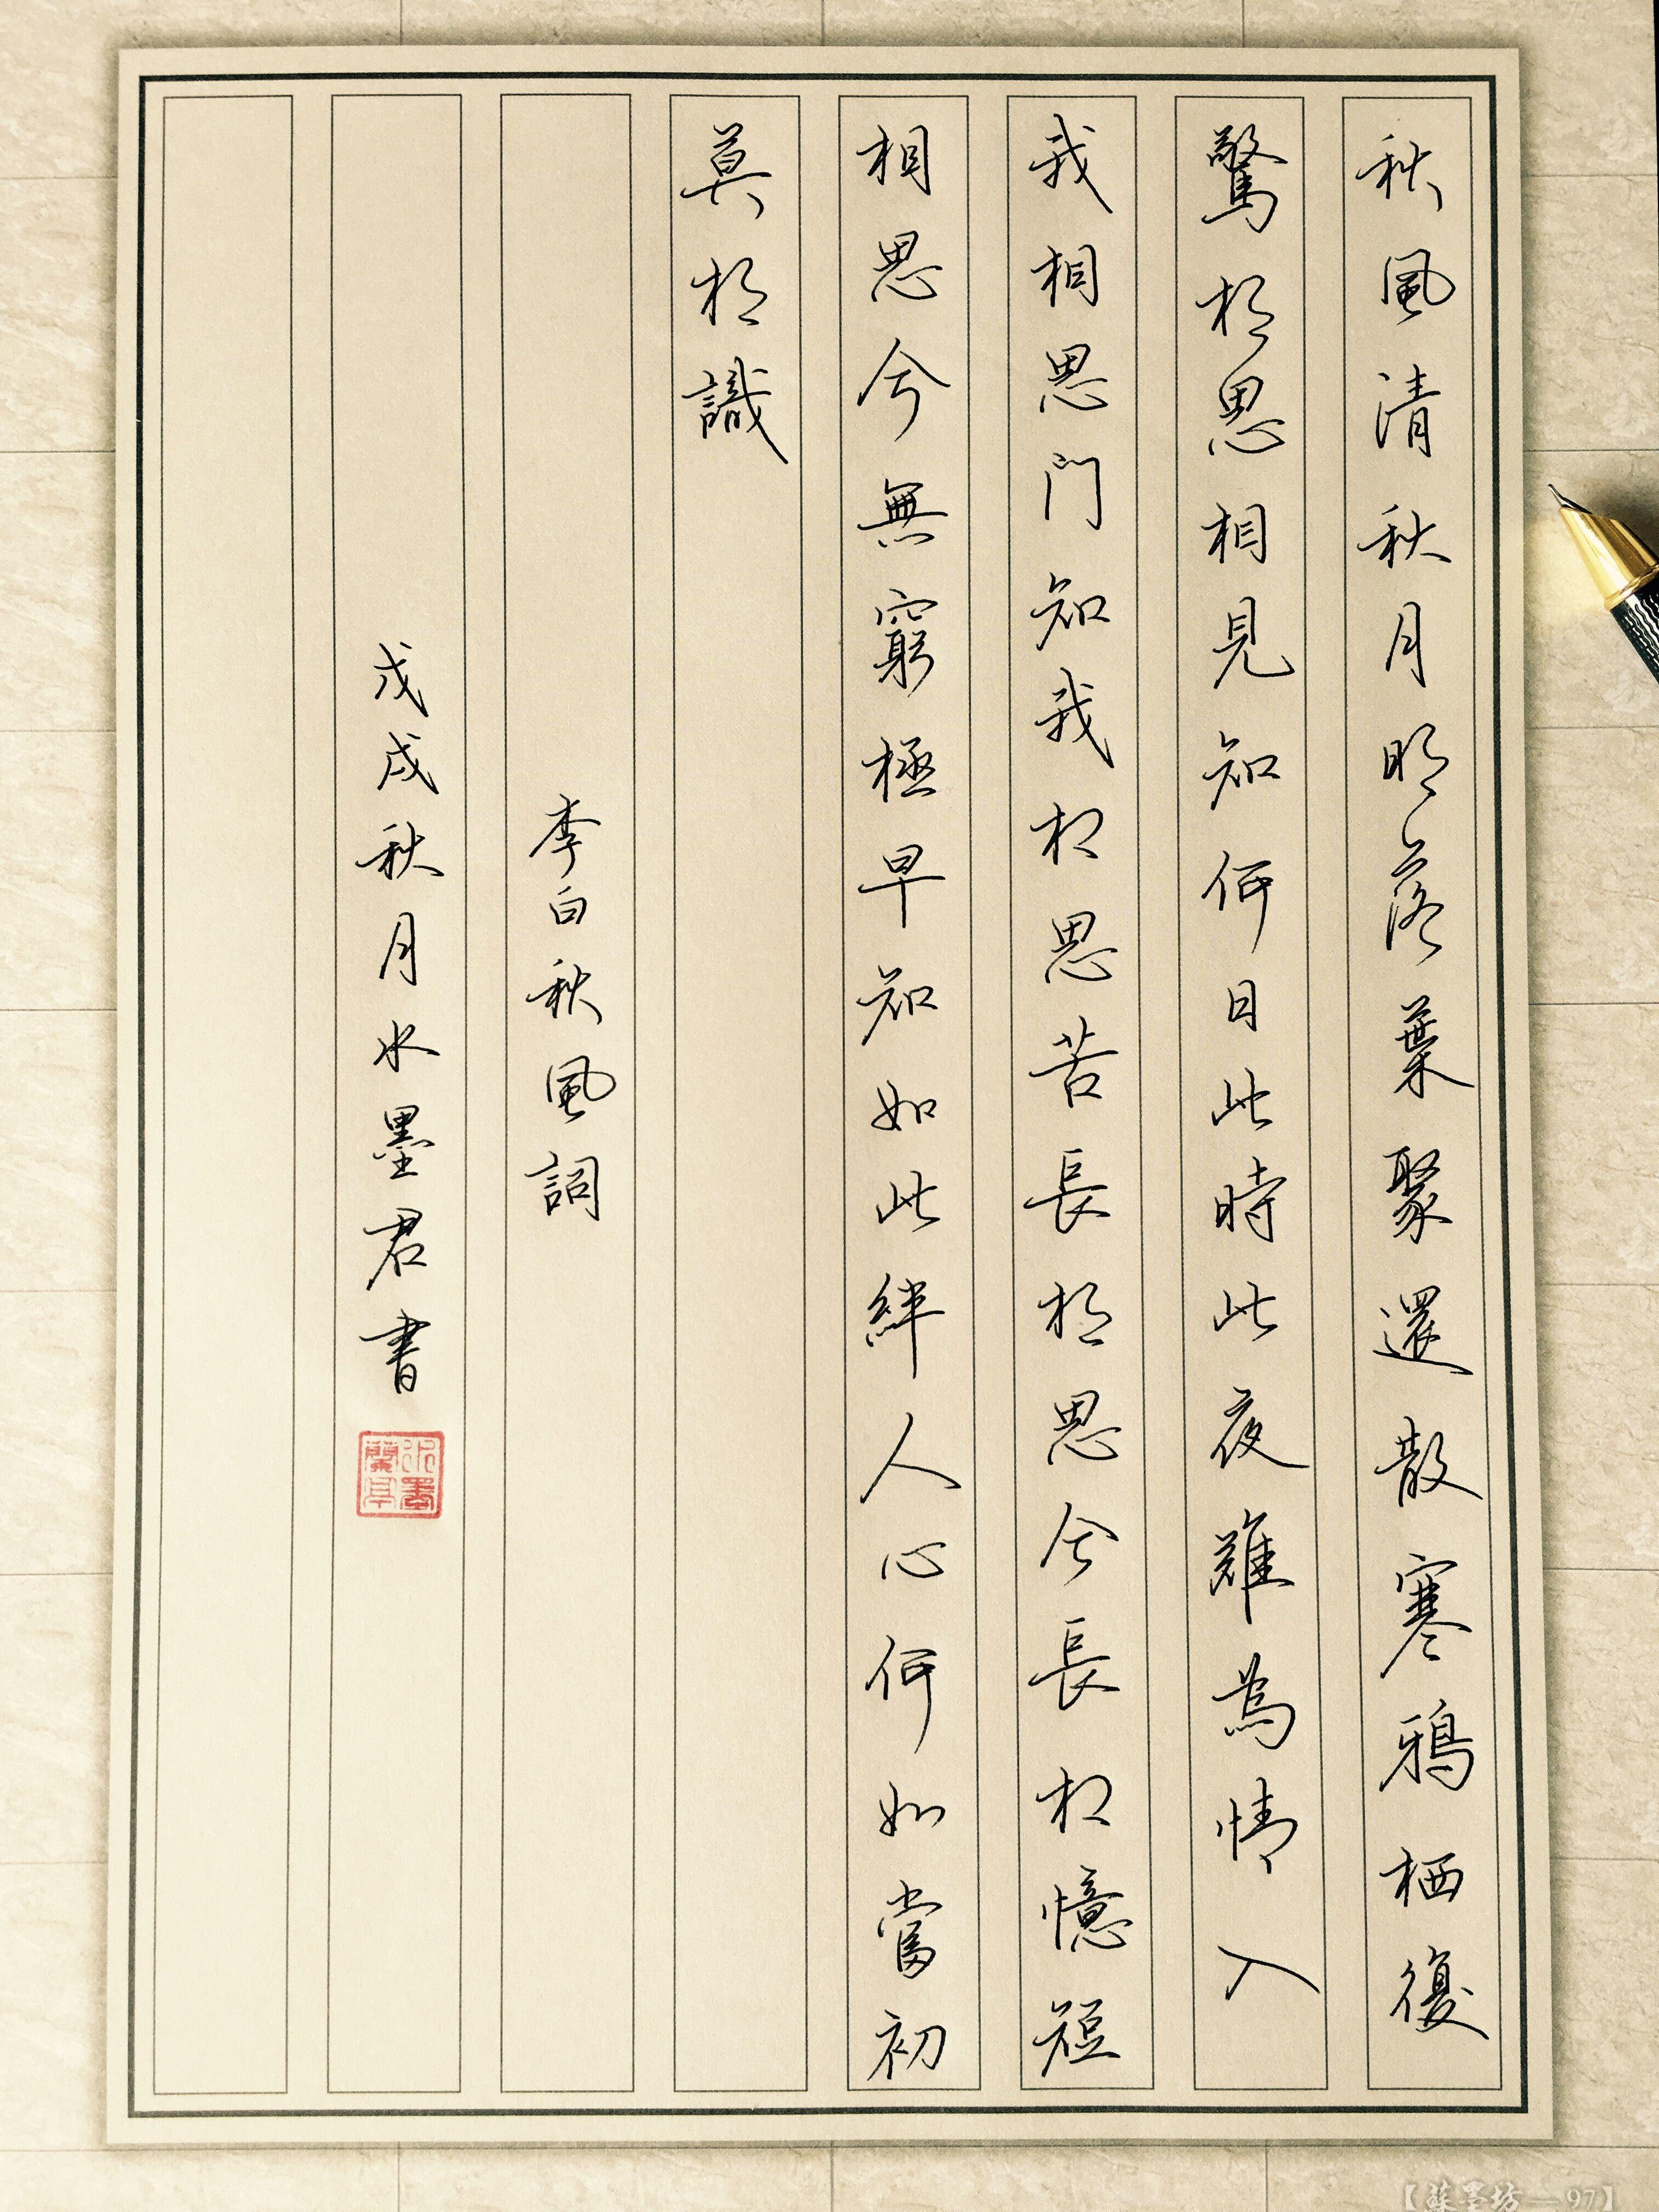 秋風清秋月明落葉聚還散寒鴉栖復
驚相思相見知何日此時此夜難為情入
我相思門知我相思苦長相思兮長相憶短
相思兮無窮極早知如此絆人心何如當初
莫相識
李白秋風詞
戊戌秋月水墨君書
水墨蘭亭
【蘇墨坊—97】